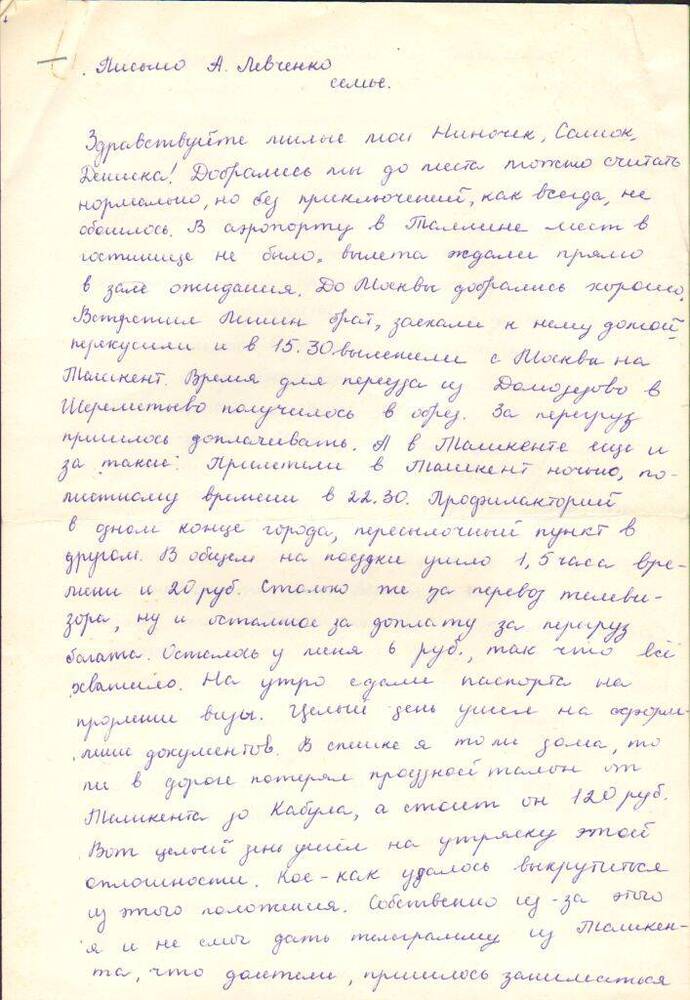 Письмо А. Левченко
семье.
Здравствуйте милые мои Ниночек, Самок,
Дениска! Добрались мы до места можно считать
нормально, но без приключений, как всегда, не
обошлось. В аэропорту в Таллине мест в
гостинице не было, вылета ждали прямо
в зале ожидания. До Москвы добрались хорошо.
Встретил Лишин брат, заехали к нему домой,
перекусили и в 15.30 вылетели с Москвы на
Ташкент. Время для переезда из Домодедово в
Шереметьево получилось в обрез. За перегруз
пришлось доплачивать. А в Ташкенте еще и
за такси. Прилетели в Ташкент ночью, по-
местному времени в 22.30. Профилакторий
в одном конце города, пересылочный пункт в
другом. В общем на поездки ушло 1,5 часа вре-
мени и 20 руб. Столько же за перевоз телеви-
зора, ну и остальное за доплату за перегруз
багажа. Осталось у меня 6 руб., так что всё
хватило. На утро сдали паспорта на
продление визы. Целый день ушел на оформ-
ление документов. В спешке я то ли дома, то
ли в дороге потерял проездной талон от
Ташкента до Кабула, а стоит он 120 руб.
Вот целый день ушёл на утряску этой
оплошности. Кое-как удалось выкрутиться
из этого положения. Собственно из-за этого
я и не смог дать телеграмму из Ташкен-
та, что долетели, пришлось заниматься